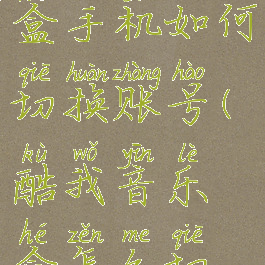 盒手机如何
qiē huàn zhàng hào
切换账号(
kù wǒ yīn lè
酷我音乐
hé zěn me qiē